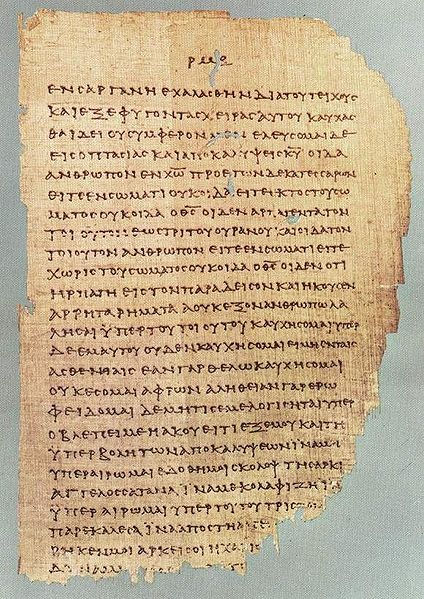 ΕΝΣΑΡΓΑΝΗΕΧΑΛΑΣΘΗΝΔΙΑΤΟΥΤΕΙΧΟΥΣ
ΚΑΙΕΞΕΦΥΓΟΝΤΑΣΧΕΙΡΑΣΑΥΤΟΥΚΑΥΧΑΣ
ΘΑΙΔΕΙΟΥΣΥΜΦΕΡΟΝΜΕΝΕΛΕΥΣΟΜΑΙΔΕ
ΕΙΣΟΠΤΑΣΙΑΣΚΑΙΑΠΟΚΑΛΥΨΕΙΣΚΥ ΟΙΔΑ
ΑΝΘΡΩΠΟΝΕΝΧΩ ΠΡΟΕΤΩΝΔΕΚΑΤΕΣΣΑΡΩΝ
ΕΙΤΕΕΝΣΩΜΑΤΙΟΥΚΟΙΔΑΕΙΤΕΕΚΤΟΣΤΟΥΣΩ
ΜΑΤΟΣΟΥΚΟΙΔΑ ΟΘΣ ΟΙΔΕΝΑΡΠΑΓΕΝΤΑΤΟΝ
ΤΟΙΟΥΤΟΝΕΩΣΤΡΙΤΟΥΟΥΡΑΝΟΥΚΑΙΟΙΔΑΤΟΝ
ΤΟΙΟΥΤΟΝΑΝΘΡΩΠΟΝΕΙΤΕΕΝΣΩΜΑΤΙΕΙΤΕ
ΧΩΡΙΣΤΟΥΣΩΜΑΤΟΣΟΥΚΟΙΔΑ ΟΘΣ ΟΙΔΕΝΟΤΙ
ΗΡΠΑΓΗΕΙΣΤΟΝΠΑΡΑΔΕΙΣΟΝΚΑΙΗΚΟΥΣΕΝ
ΑΡΡΗΤΑΡΗΜΑΤΑΑΟΥΚΕΞΟΝΑΝΘΡΩΠΩΛΑ
ΛΗΣΑΙΥΠΕΡΤΟΥΤΟΙΟΥΤΟΥΚΑΥΧΗΣΟΜΑΙΥΠΕΡ
ΔΕΕΜΑΥΤΟΥΟΥΔΕΝΚΑΥΧΗΣΟΜΑΙΕΙΜΗΕΝΤΑΙΣ
ΑΣΘΕΝΕΙΑΙΣΕΑΝΓΑΡΘΕΛΩΚΑΥΧΗΣΟΜΑΙ
ΟΥΚΕΣΟΜΑΙΑΦΡΩΝΑΛΗΘΕΙΑΝΓΑΡΕΡΩ
ΦΕΙΔΟΜΑΙΔΕΜΗΤΙΣΕΜΕΛΟΓΙΣΗΤΑΙΥΠΕΡ
ΟΒΛΕΠΕΙΜΕΗΑΚΟΥΕΙΤΙΕΞΕΜΟΥΚΑΙΤΗ
ΥΠΕΡΒΟΛΗΤΩΝΑΠΟΚΑΛΥΨΕΩΝΙΝΑΜΗ
ΥΠΕΡΑΙΡΩΜΑΙΕΔΟΘΗΜΟΙΣΚΟΛΟΨΤΗΣΑΡΚΙ
ΑΓΓΕΛΟΣΣΑΤΑΝΑΙΝΑΜΕΚΟΛΑΦΙΖΗΙ
ΥΠΕΡΑΙΡΩΜΑΙΥΠΕΡΤΟΥΤΟΥΤΡΙΣ
ΠΑΡΕΚΑΛΕΣΑΙΝΑΑΠΟΣΤΗ
ΡΗΚΕΝΜΟΙΑΡΚΕΙΣΟΙΗΧΑΡΙΣ